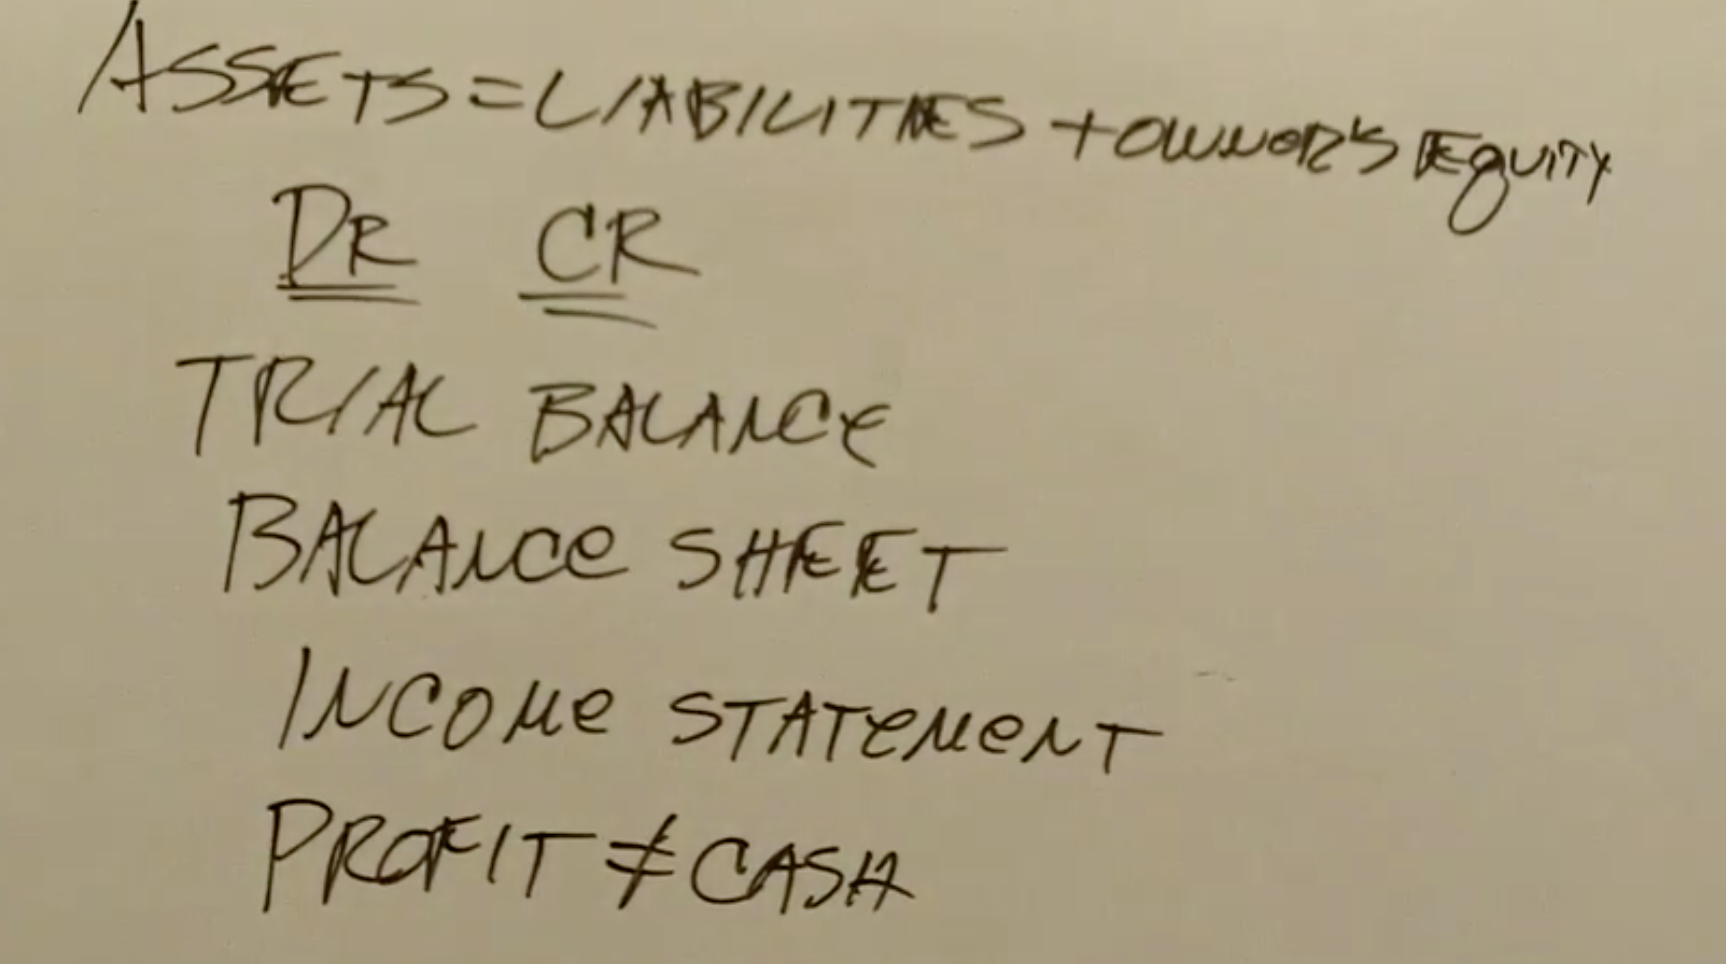 ASSETS = LIABILITIES + OWNER'S EQUITY
DR CR
TRIAL BALANCE
BALANCE SHEET
INCOME STATEMENT
PROFIT ≠ CASH